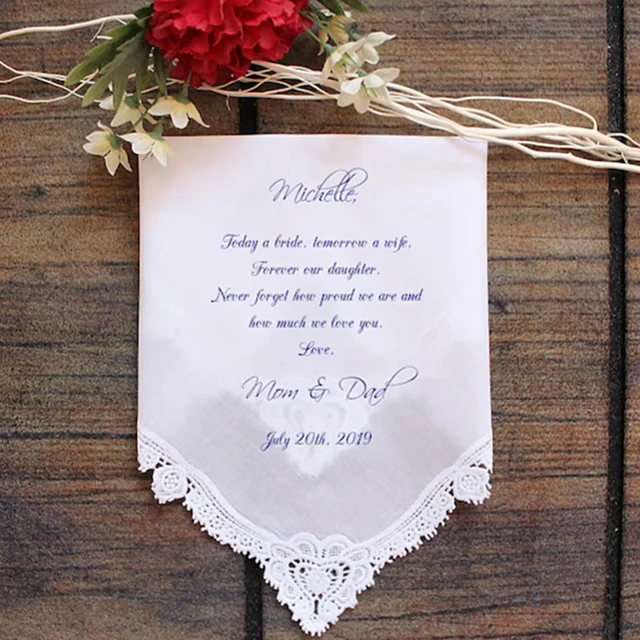 Michelle,
Today a bride, tomorrow a wife,
Forever our daughter.
Never forget how proud we are and
how much we love you.
Love,
Mom & Dad
July 20th, 2019